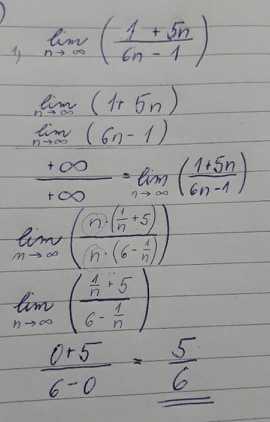 1, lim n→∞ ( (1 + 5n) / (6n - 1) )
lim n→∞ (1 + 5n)
lim n→∞ (6n - 1)
+∞ / +∞ = lim n→∞ ( (1+5n) / (6n-1) )
lim n→∞ ( (n · (1/n + 5)) / (n · (6 - 1/n)) )
lim n→∞ ( (1/n + 5) / (6 - 1/n) )
(0+5) / (6-0) = 5/6